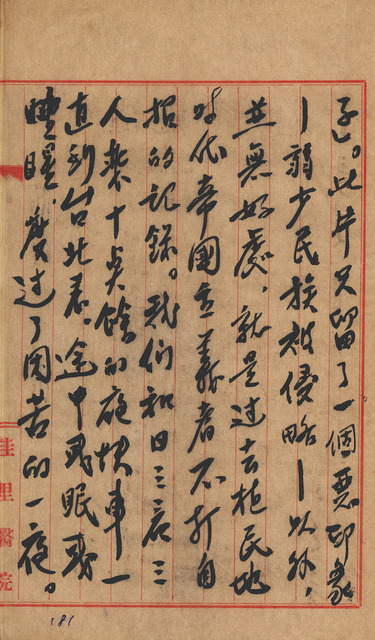 子」。此片只留了一個惡印象
—弱少民族被侵略—以外,
並無好處、就是过去植民地
时代帝國主義者不打自
招的記錄。我们和日三
人十点餘的夜快車一
直到台北來。途中或眠或
过了困苦的一夜。
佳里醫院
181